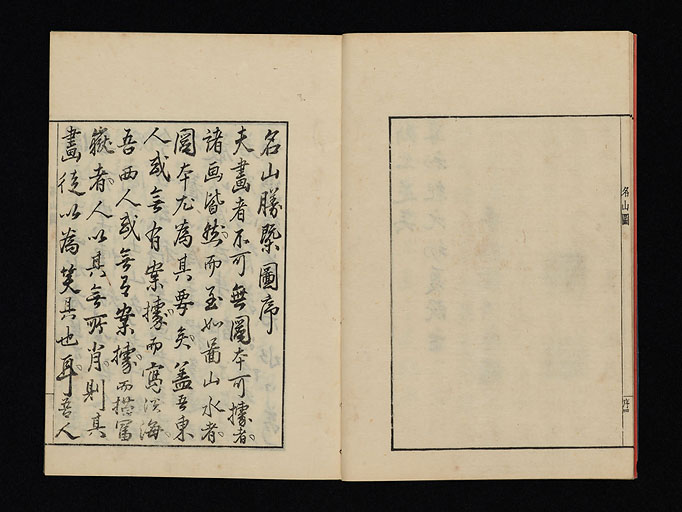 名山圖
序四
名山勝槩圖序
夫畫者不可無圖本可據者
諸画皆然而至如啚山水者
圖本尤為其要矣蓋吾東
人或無有案據而寫溟海
吾西人或無有案據而描富
嶽者人以其無所肖則其
畫徒以為笑具也耳吾人